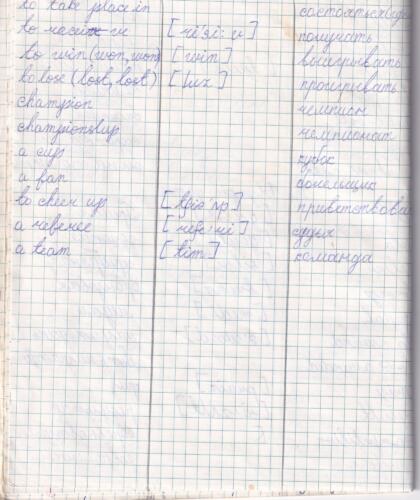 to take place in состояться
to receive [ri'si:v] получать
to win (won, won) [win] выигрывать
to lose (lost, lost) [luz] проигрывать
champion чемпион
championship чемпионат
a cup кубок
a fan болельщик
to cheer up приветствова
a referee судья
a team [tim] команда